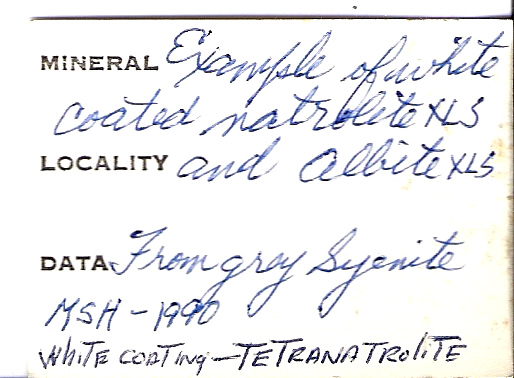 MINERAL Example of white
coated natrolite XLS
LOCALITY and albite XLS
DATA From grey Syenite
MSH - 1990
WHITE COATING - TETRANATROLITE